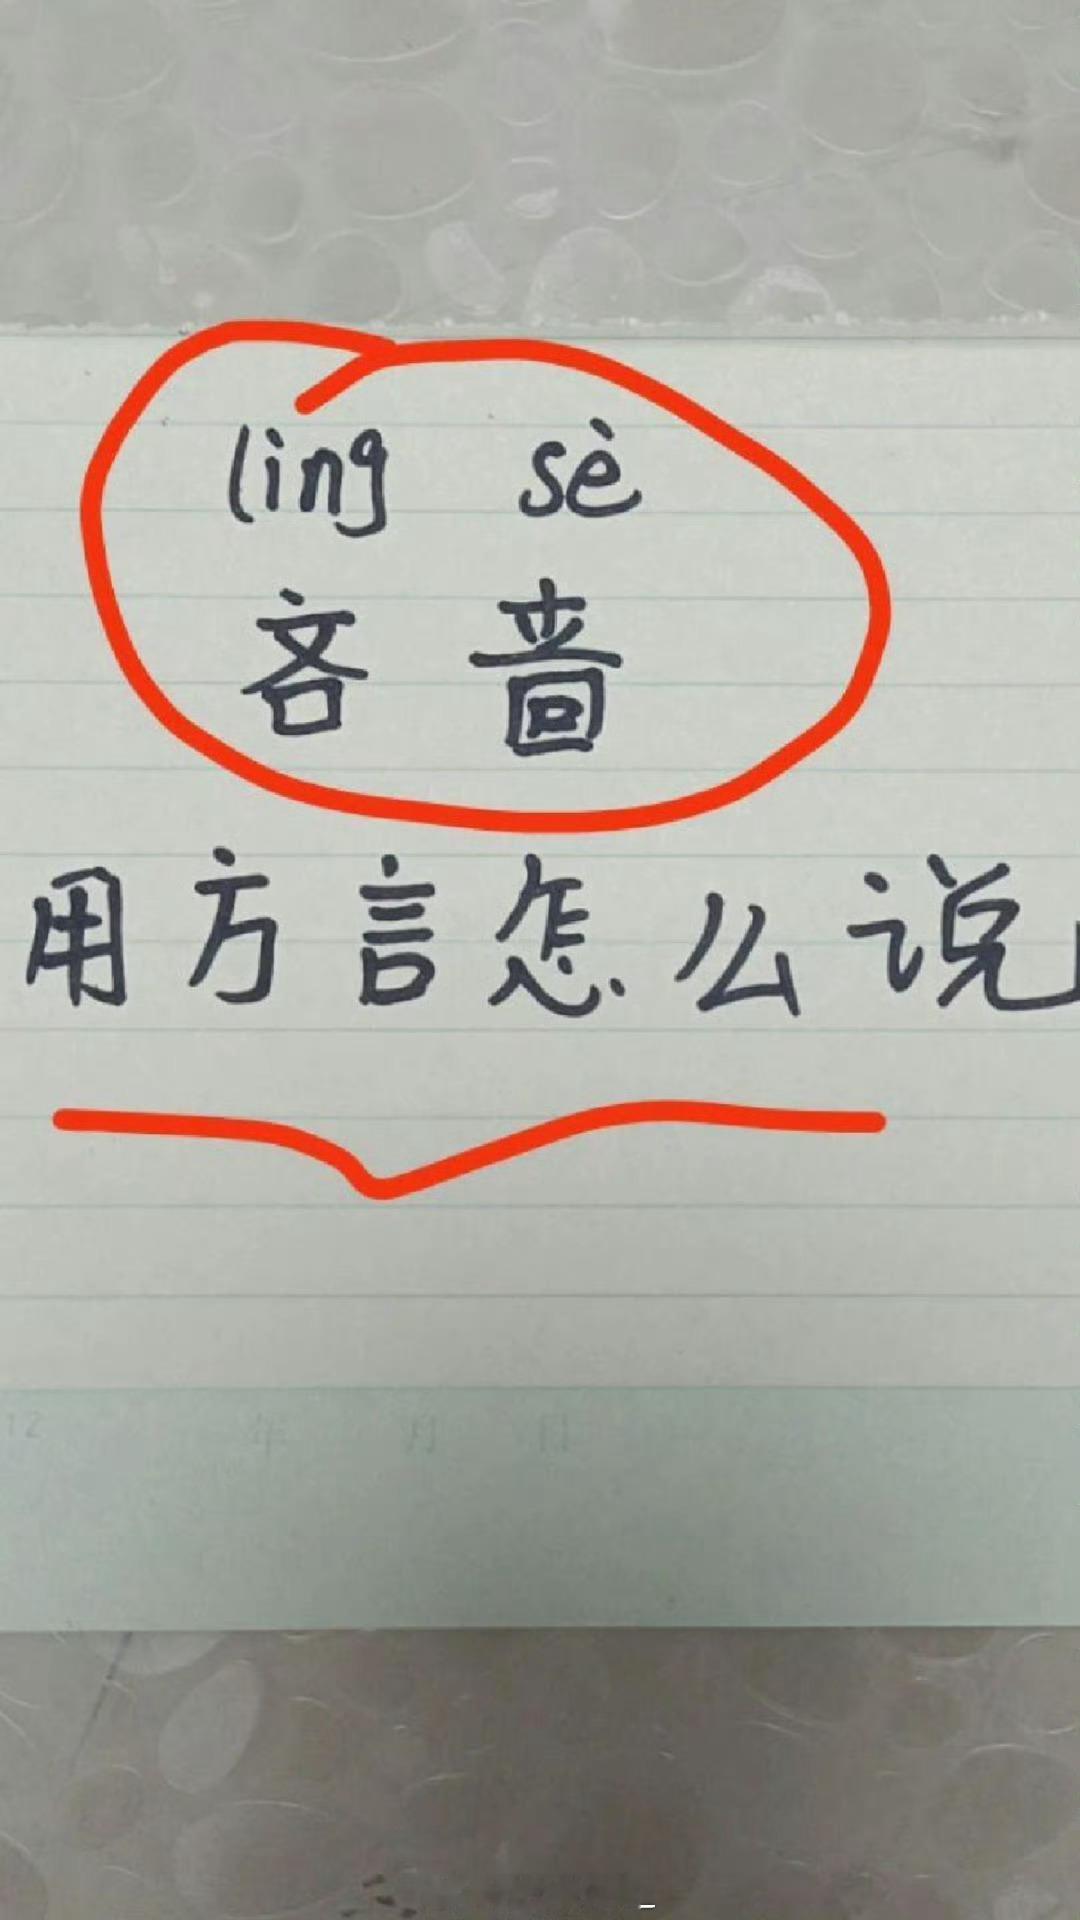 ling sè
吝啬
用方言怎么说
12 年 月 日